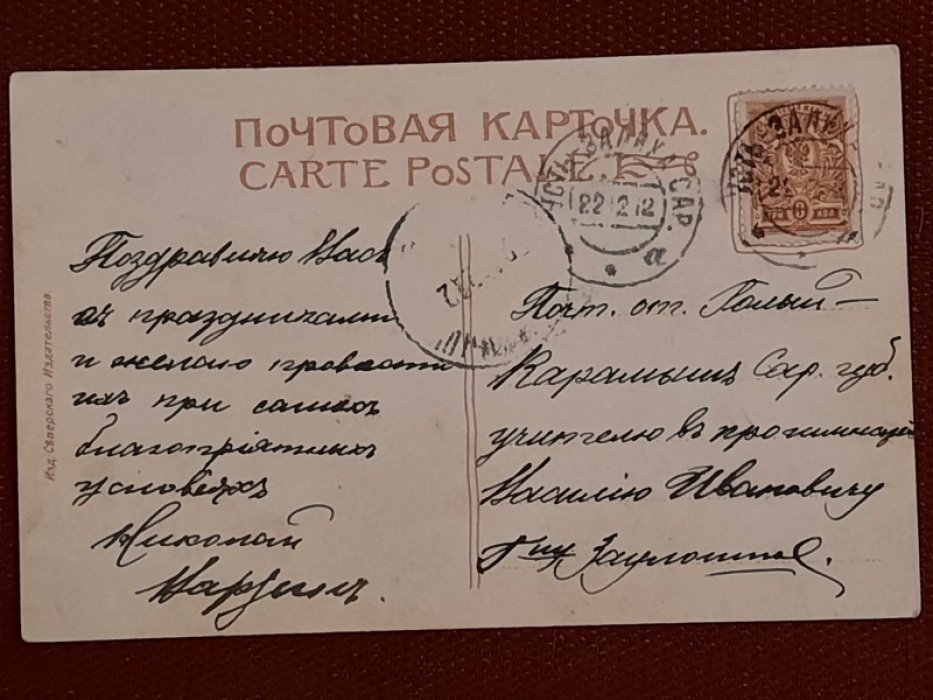 ПОЧТОВАЯ КАРТОЧКА.
CARTE POSTALE.
УСТЬ-ЗАЛИХ САР.
22 12 12
а
УСТЬ-ЗАЛИХ
ТРИ КОП
Поздравляю Васъ
съ праздниками
и желаю провести
ихъ при самыхъ
благопріятныхъ
условіяхъ
Николай
Изд. Сѣверскаго Издательства
Почт. от. Голый-
Карамышъ Сар. губ.
учителю въ прогимназіи
Василію Ивановичу
Г-ну